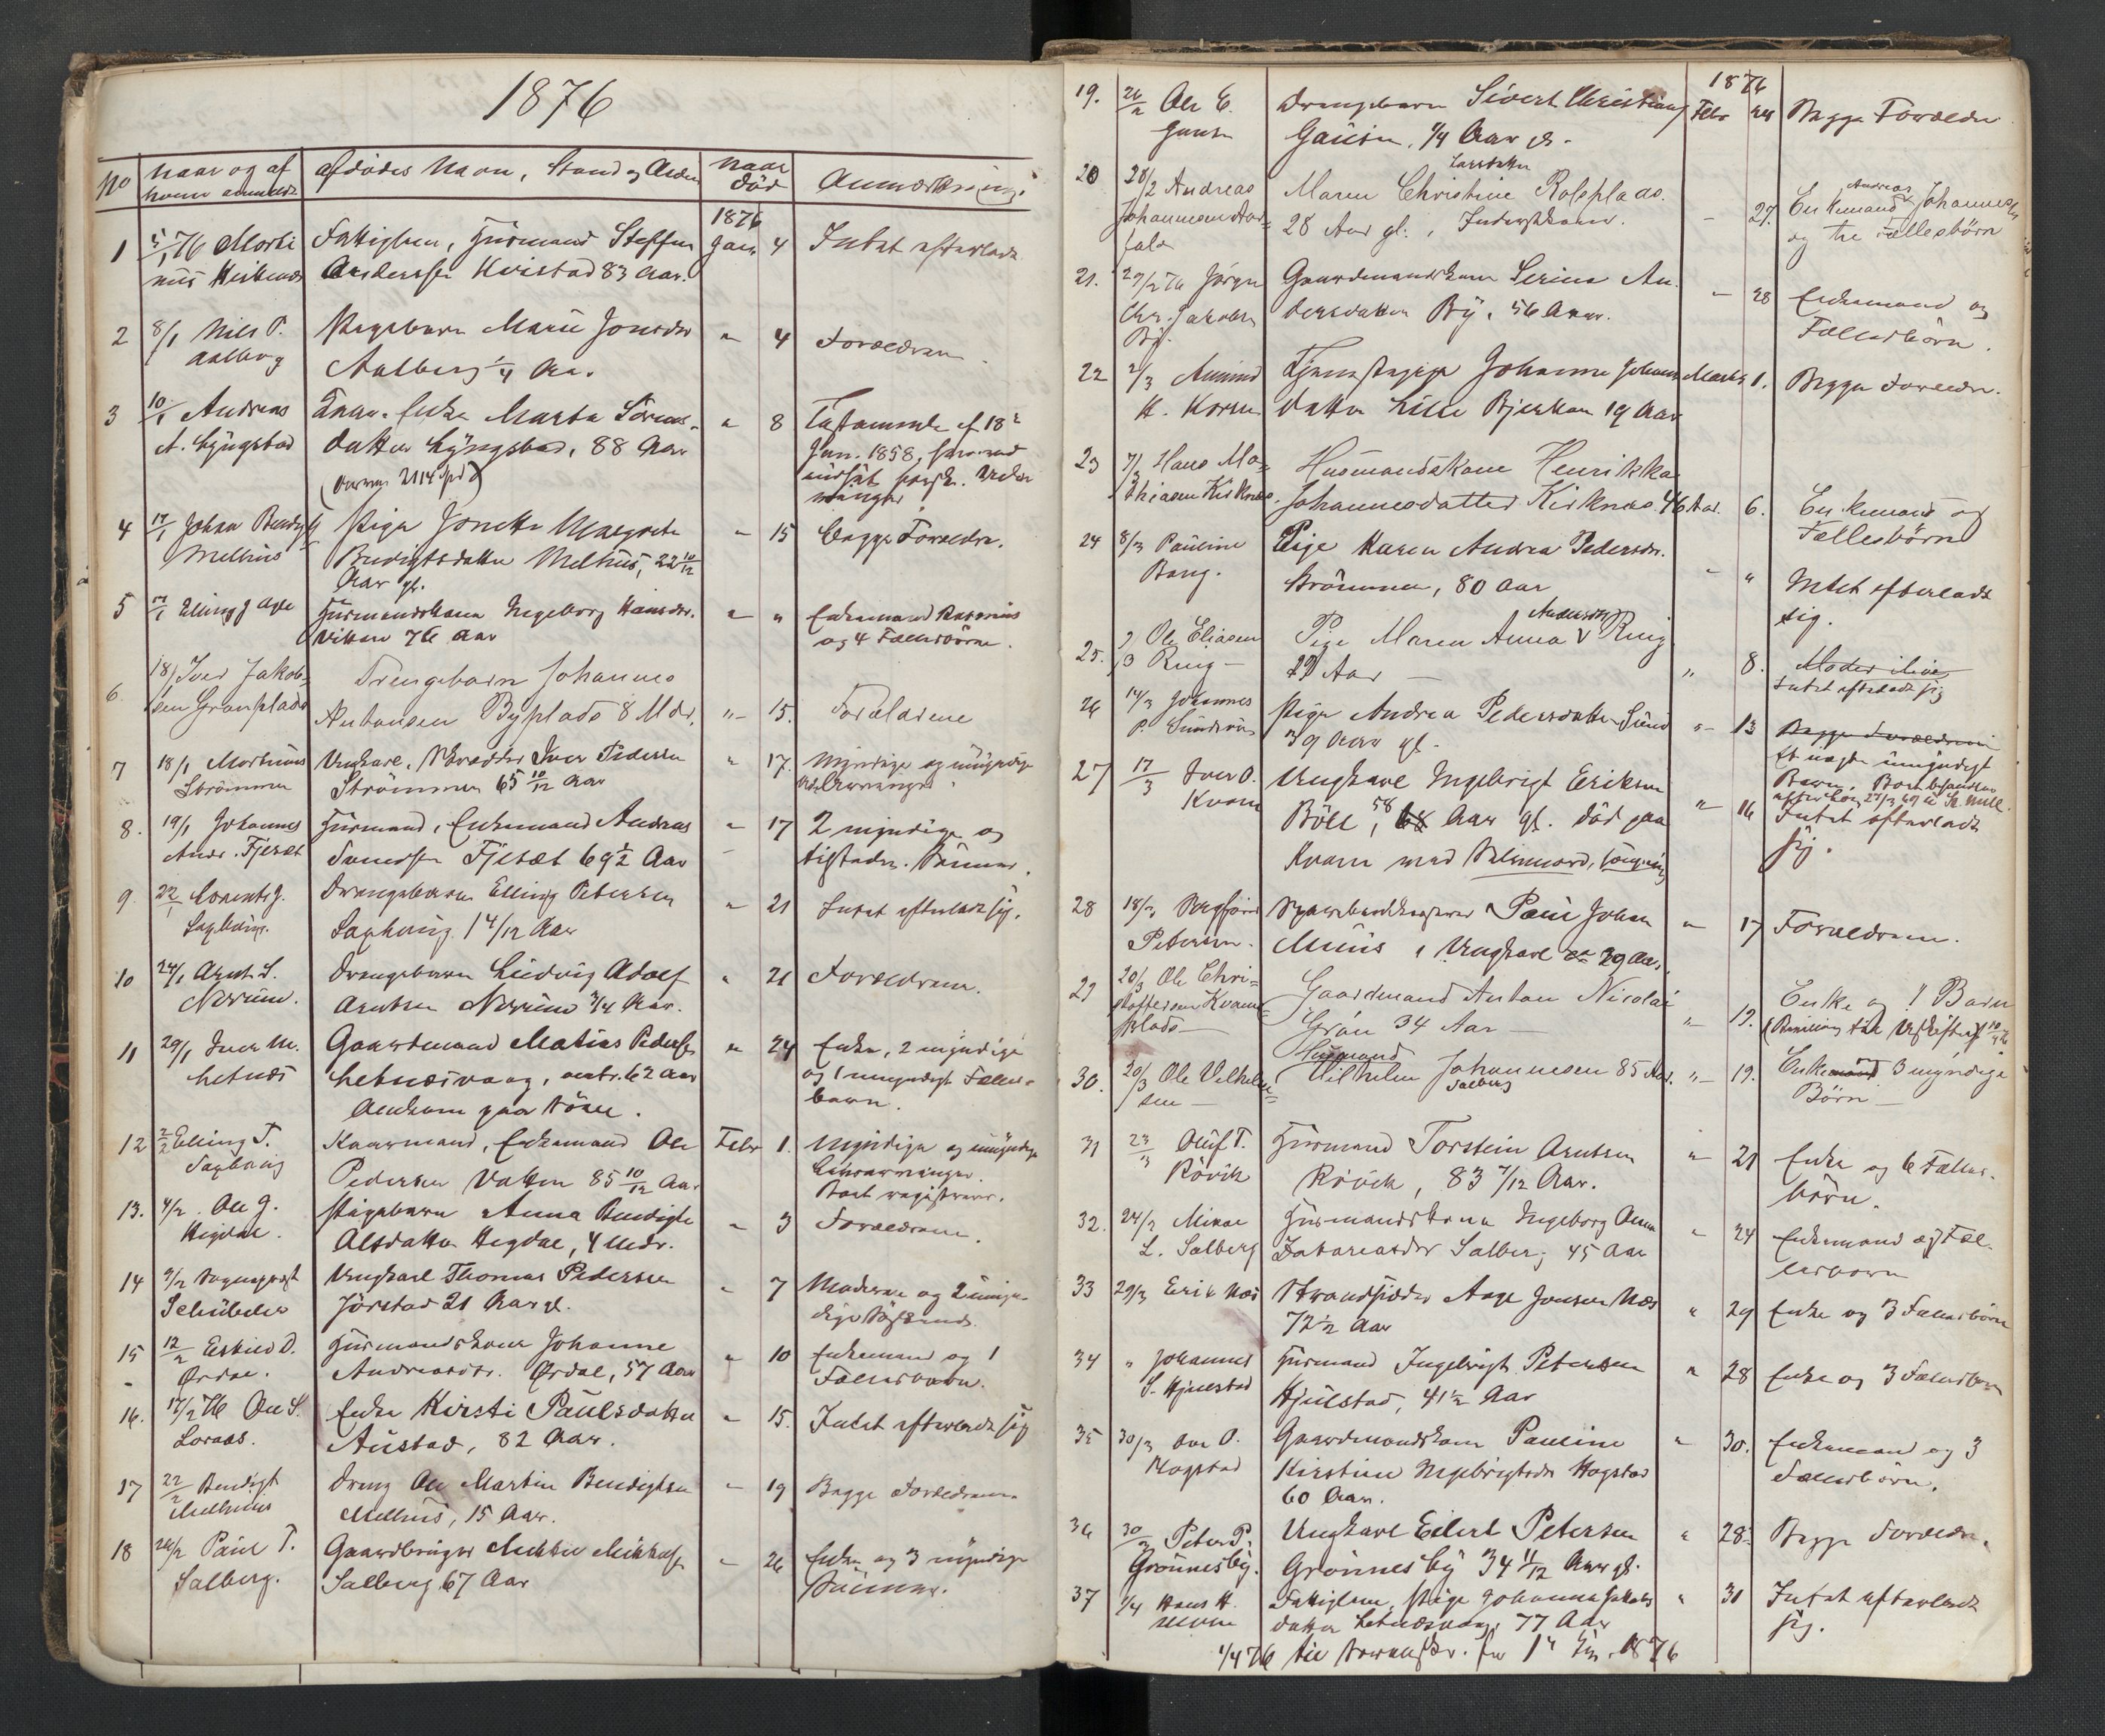 1876
No
naar og af
hvem anmeldt
Afdødes Navn, Stand og Alder
naar
død
Anmærkninger
1876
1
5/1 76 Morti
nus Kirknæs
Fattiglem, Husmand Steffen
Andersen Kvistad 83 Aar.
Jan. 4
Intet efterladt
2
8/1 Nils P.
Aalberg
Pigebarn Marie Jonsdr
Aalberg 1/4 Aar.
" 4
Forældrene.
3
10/1 Andreas
A. Lyngstad
Enke Marta Sörens-
datter Lyngstad, 88 Aar
" 8
Testamente af 18
Jan. 1858,
4
17/1 Johan Bendigts
Melhus
Pige Jonetta Margrete
Bendigtsdatter Melhus, 22 10/12
Aar gl.
" 15
Begge Forældre.
5
17/1 Elling J Aye
Husmandskone Ingeborg Hansdr.
Vikan 76 Aar
" "
Enkemand Rasmus
og 4 Fællesbörn.
6.
18/1 Iver Jakob-
sen Granplads
Drengebarn Johannes
Antonsen Byplads 8 Mdr.
"- 15.
Forældrene
7
18/1 Martinus
Strömmen
Ungkarl, Skrædder Iver Pedersen
Strömmen 65 10/12 Aar
" 17.
Myndige og umyndige
Udarvinger.
8.
19/1 Johannes
Andr. Fjesæt
Husmand, Enkemand Andreas
Fjesæt 69 1/2 Aar
" 17
2 myndige og
Sönner.
9.
22/1 Lorents J.
Saxhaug.
Drengebarn Elling Petersen
Saxhaug 1 4/12 Aar
" 21
Intet efterladt sig.
10
24/1 Arnt S.
Norum.
Drengebarn Ludvig Adolf
Arntsen Norum 3/4 Aar.
" 21
Forældrene.
11
29/1 Iver M.
Letnæs
Gaardmand Matias Pedersen
Letnæsvang, 62 Aar
" 24
Enke, 2 myndige
og 1 umyndigt Fælles-
barn.
12
2/2 Elling T.
Saxhaug
Kaarmand, Enkemand Ole
Pedersen Vatten 85 10/12 Aar
Febr 1.
Myndige og umyndige
Livsarvinger.
Boet registreres.
13.
4/2 Ole J.
Hegdal.
Pigebarn Anna Bendigte
Olsdatter Hegdal, 4 Mdr.
" 3
Forældrene.
14
9/2 Sogneprest
Schübeler
Ungkarl Thomas Pedersen
Jörstad 21 Aar gl.
" 7
Moderen og 2 umyn-
dige Söskende.
15
12/2 Eskild O.
Ørdal.
Husmandskone Johanne
Andreasdtr. Ørdal, 57 Aar
" 10
Enkemand og 1
Fællesbarn.
16.
17/2 76 Ole S.
Loraas.
Enke Kirsti Paulsdatter
Austad, 82 Aar.
" 15.
Intet efterladt sig
17
22/2 Bendigt
Melhus
Dreng Ole Martin Bendigtsen
Melhus, 15 Aar.
" 19
Begge Forældrene
18
26/2 Paul T.
Salberg.
Gaardbruger Mikkel Mikkelsen
Salberg 67 Aar
" 26
Enke og 3 myndige
Sönner.
19.
26/2 Ole E.
Gausen
Drengebarn Sivert Christians
Gausen, 1/4 Aar gl.
1876
Febr 24
Begge Forældre
20
28/2 Andreas
Johannesen
Larsdatter
Maren Christine Rolsplads.
28 Aar gl., Inderstkone.
- 27.
Andreas
Enkemand Johannesen
og tre Fællesbörn
21.
29/2 76 Jörgen
Chr. Jakobsen
By.
Gaardmandskone Serine An-
dersdatter By. 56 Aar.
- 28
Enkemand og
Fællesbörn.
22
2/3 Amund
K. Korsen
Tjenestepige Johanna Johannes
datter Lille Bjerkan 19 Aar
Marts 1.
Begge Forældre.
23
7/3 Hans Ma-
thiasen Kirknæs.
Husmandskone Henrikka
Johannesdatter Kirknæs. 46 Aar.
6.
Enkemand og
Fællesbörn
24
8/3 Pauline
Bang.
Pige Karen Andrea Pedersdr.
Strömmen, 80 Aar
- "
Intet efterladt
sig.
25.
9/3 Ole Eliasen
Ring -
Andersdtr
Pige Maren Anna Ring
29 Aar -
" 8.
Moder ilive
Intet efterladt sig
26
14/3 Johannes
P. Sundsön
Pige Andrea Pedersdatter Sund
39 Aar gl.
"- 13
Begge Forældrene
Et umyndigt
Barn,
27
17/3 Iver O.
Kvam
Ungkarl Ingebrigt Eriksen
Böll, 58 68 Aar gl. Död paa
Kvam
" 16
Intet efterladt
sig.
28
18/3
Petersen.
Paul Johan
Muus, Ungkarl 29 Aar.
" 17
Forældrene.
29
20/3 Ole Chri-
stoffersen Kvams-
plads -
Gaardmand Anton Nicolai
Grön 34 Aar -
"- 19.
Enke og 1 Barn
30.
20/3 Ole Vilhelm-
sen -
Husmand
Vilhelm Johannesen 85 Aar.
Salberg
"- 19.
Enkemand 3 myndige
Börn -
31
23/3 Oluf T.
Rövik
Husmand Torstein Arntsen
Rövik, 83 7/12 Aar.
" 21
Enke og 6 Fælles-
börn.
32.
24/3 Mikal
L. Salberg
Husmandskone Ingeborg Anna
Zakariasdr Salberg 45 Aar
" 24
Enkemand og Fæl-
lesbörn
33
29/3 Erik Næs
Strandsidder Aage Jonsen Næs
72 1/2 Aar
" 29
Enke og 3 Fællesbörn
34
" Johannes
S. Hjulstad
Husmand Ingebrigt Petersen
Hjulstad, 41 1/2 Aar
" 28
Enke og 3 Fællesbörn
35
30/3 Ole O.
Hogstad
Gaardmandskone Pauline
Kirstine Ingebrigtsdr Hogstad
60 Aar.
" 30.
Enkemand og 3
Fællesbörn.
36
30/3 Peter P.
Grönnesby.
Ungkarl Eilert Petersen
Grönnesby 34 11/12 Aar gl.
" 28
Begge Forældre.
37
1/4 Hans H.
Fattiglem, Pige Johanna Jakobs
datter Letnæsvang, 77 Aar
" 31
Intet efterladt
sig.
1/4 76 til Sorenskr. for 1 1876